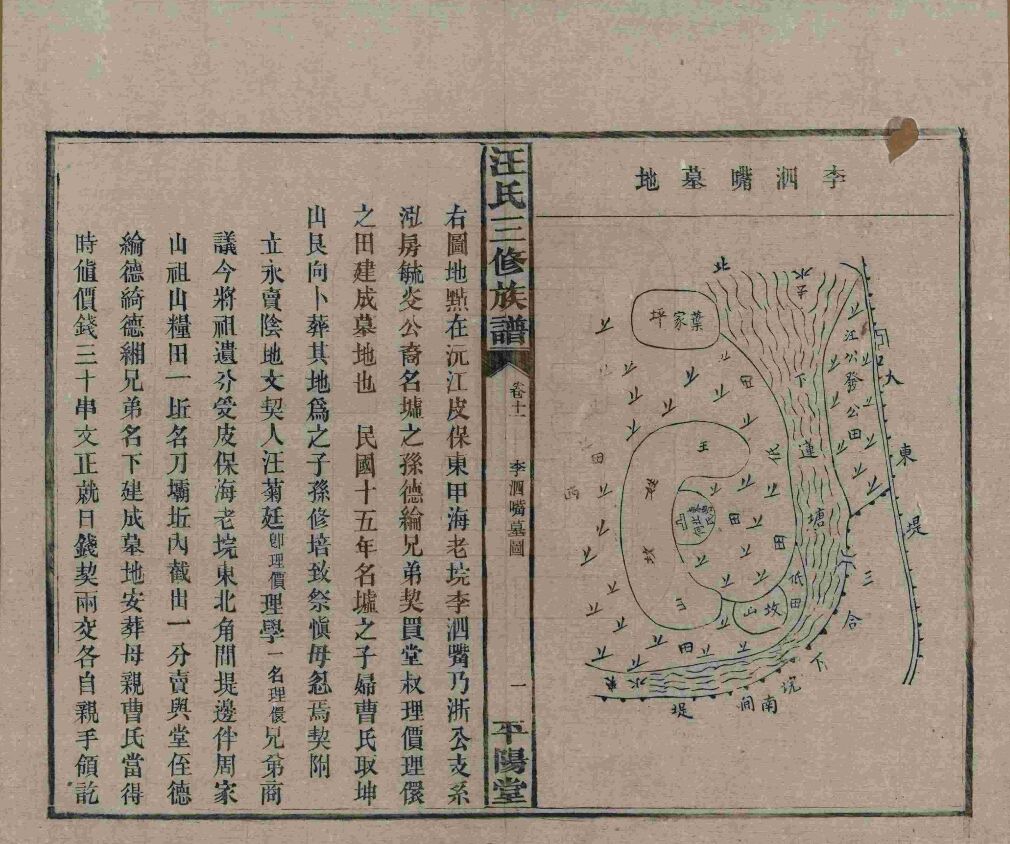 李泗嘴墓地
北
水子
葉家坪
汪公發公田
大
東
堤
王
下
蓮
塘
低
田
田
低田
西
坟
坟山
三
合
下
垸
南間
堤
田
水
東
汪氏三修族譜
卷十一
李泗嘴墓圖
一
平陽堂
右圖地㸃在沅江皮保東甲海老垸李泗嘴乃浙公支系
泓房毓炎公裔名墟之孫德綸兄弟契買堂叔理價理儇
之田建成墓地也 民國十五年名墟之子婦曹氏取坤
山艮向卜葬其地爲之子孫修培致祭愼毋忽焉契附
立永賣陰地文契人汪菊廷卽理價理學一名理儇兄弟商
議今將祖遺分受皮保海老垸東北角間堤邊伴周家
山祖山糧田一坵名刀壩坵內截出一分賣與堂侄德
綸德綺德緗兄弟名下建成墓地安葬母親曹氏當得
時値價錢三十串文正就日錢契兩交各自親手領訖